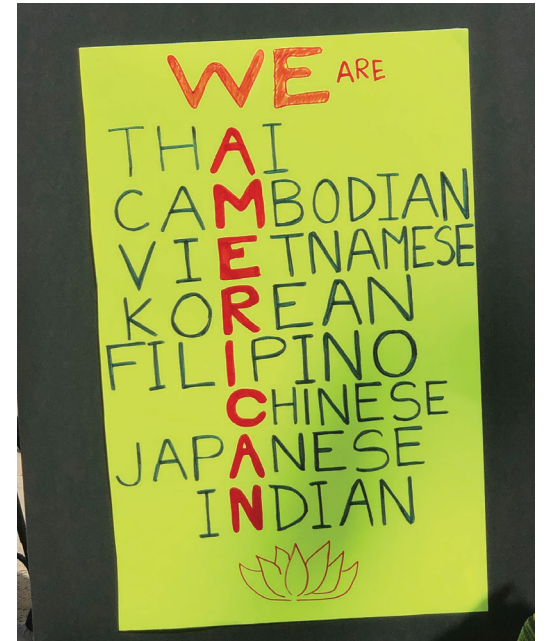 WE ARE
THAI
CAMBODIAN
VIETNAMESE
KOREAN
FILIPINO
CHINESE
JAPANESE
INDIAN